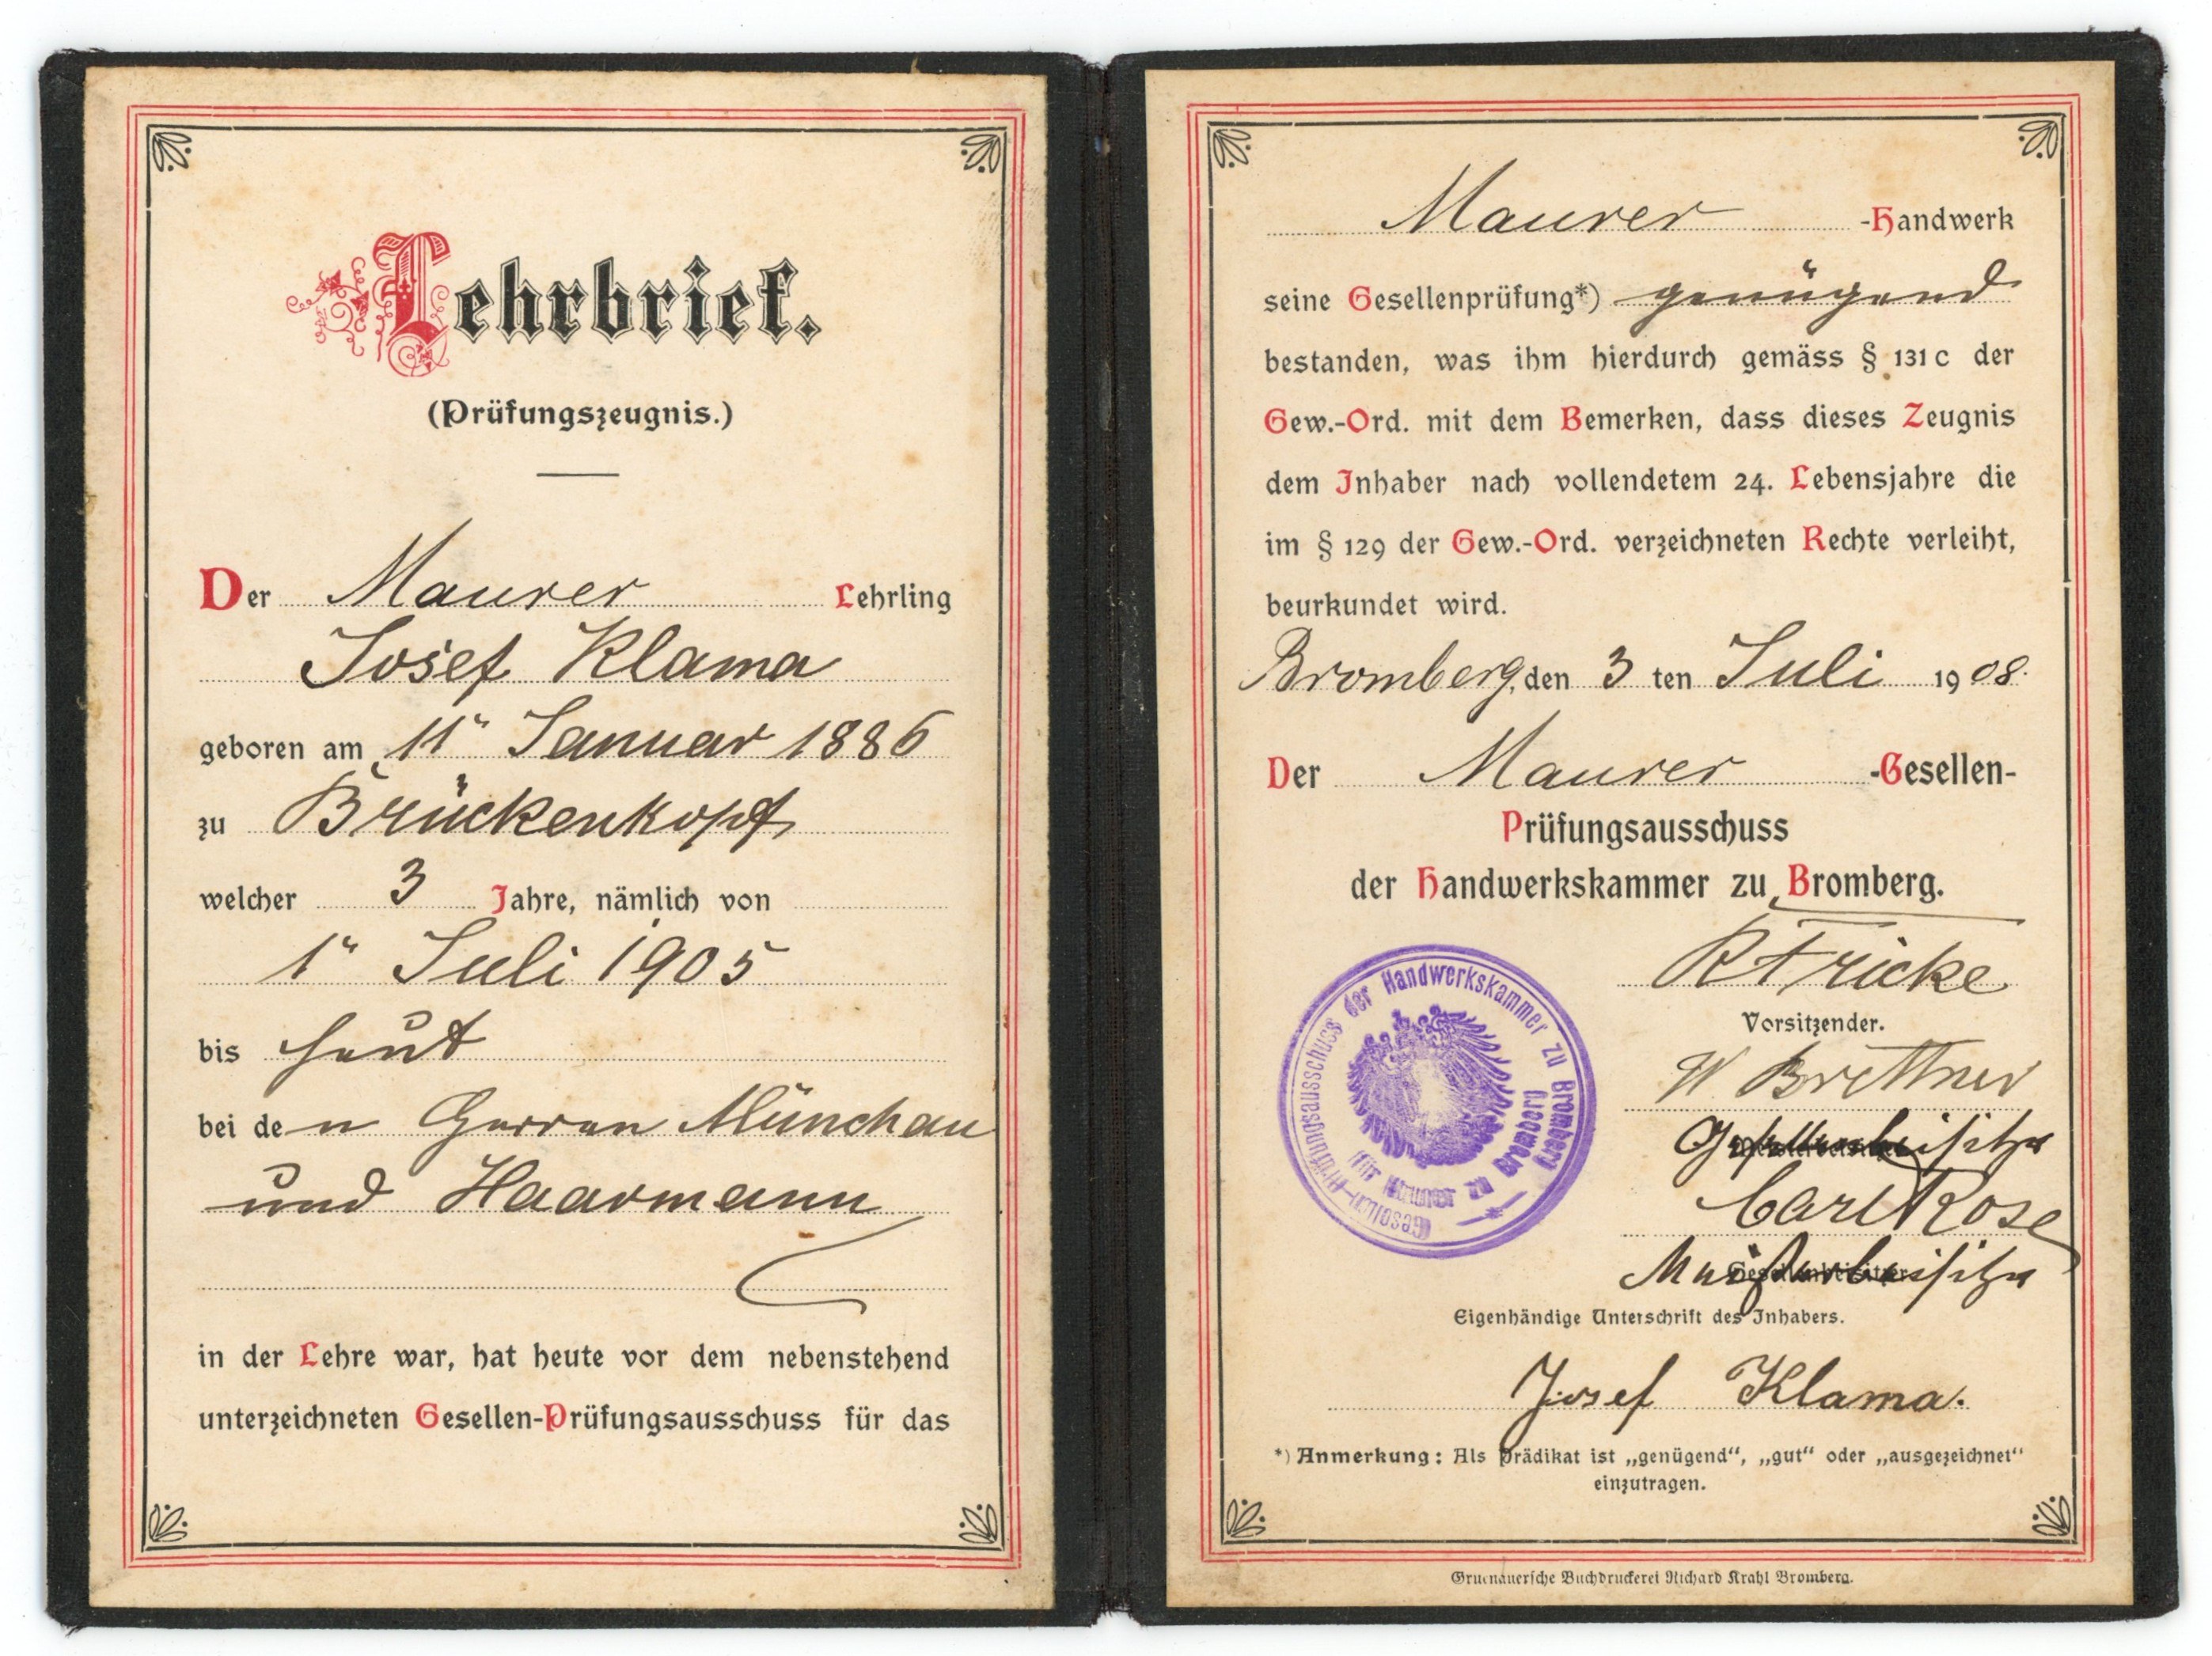 Lehrbrief.
(Prüfungszeugnis.)
Der Maurer Lehrling
Josef Klama
geboren am 11ʺ Januar 1886
zu Brückenkopf
welcher 3 Jahre, nämlich von
1ʺ Juli 1905
bis heut
bei den Herren Münchau
und Haarmann
in der Lehre war, hat heute vor dem nebenstehend
unterzeichneten Gesellen-Prüfungsausschuss für das
Maurer -Handwerk
seine Gesellenprüfung*) genügend
bestanden, was ihm hierdurch gemäss § 131c der
Gew.-Ord. mit dem Bemerken, dass dieses Zeugnis
dem Inhaber nach vollendetem 24. Lebensjahre die
im § 129 der Gew.-Ord. verzeichneten Rechte verleiht,
beurkundet wird.
Bromberg, den 3 ten Juli 1908.
Der Maurer -Gesellen-
Prüfungsausschuss
der Handwerkskammer zu Bromberg.
R Fricke
Vorsitzender.
W. Brettner
Gesellenbeisitzer
Carl Rose
Meisterbeisitzer
Gesellen-Prüfungsausschuss der Handwerkskammer zu Bromberg
für Maurer zu Bromberg
Eigenhändige Unterschrift des Inhabers.
Josef Klama.
*) Anmerkung: Als Prädikat ist „genügend“, „gut“ oder „ausgezeichnet“
einzutragen.
Gruenauersche Buchdruckerei Richard Krahl Bromberg.